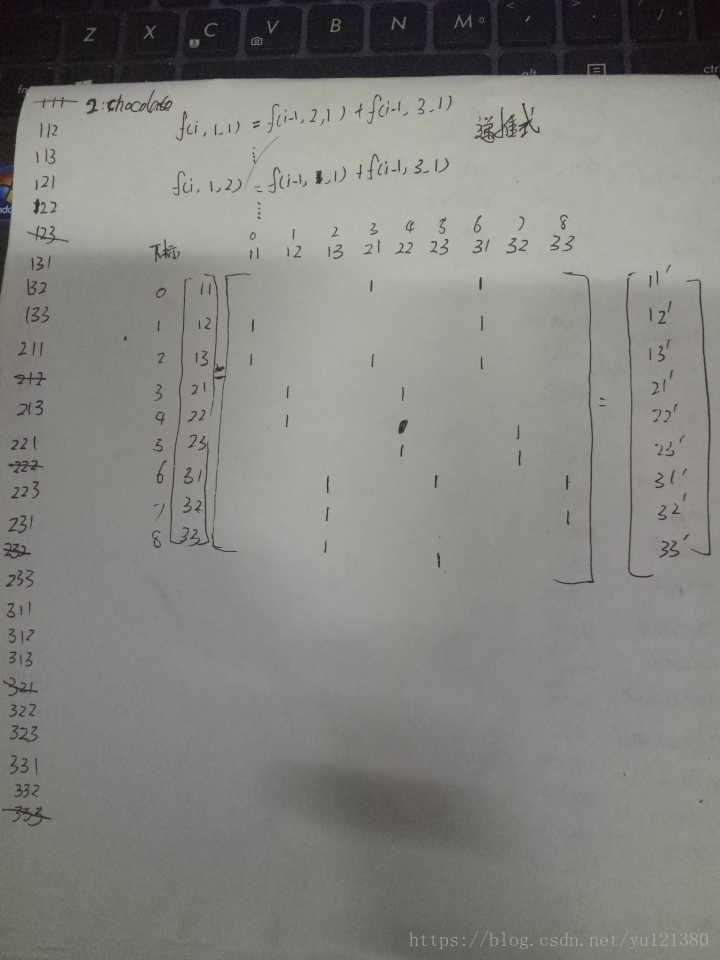 2: chocolate
f(i, 1, 1) = f(i-1, 2, 1) + f(i-1, 3, 1)
递推式
f(i, 1, 2) = f(i-1, 1, 1) + f(i-1, 3, 1)
111
112
113
121
122
123
131
132
133
211
212
213
221
222
223
231
232
233
311
312
313
321
322
323
331
332
333
0 1 2 3 4 5 6 7 8
下标 11 12 13 21 22 23 31 32 33
0 11 1 1 11'
1 12 1 1 12'
2 13 = 1 1 1 13'
3 21 1 1 = 21'
4 22 1 1 22'
5 23 1 1 23'
6 31 1 1 1 31'
7 32 1 1 32'
8 33 1 1 33'
Z X C V B N M
https://blog.csdn.net/yu121380